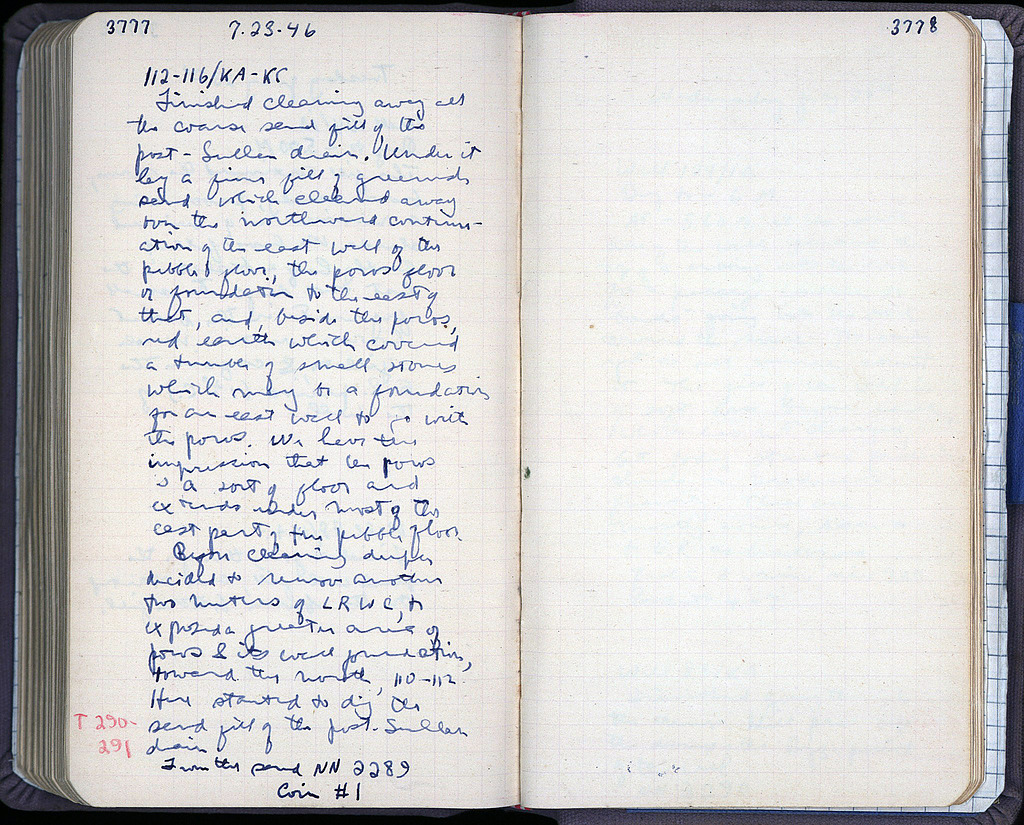 3777
7.23.46
3778
112-116/KA-KC
Finished cleaning away all
the coarse sand fill of the
post-Sullan drain. Under it
lay a finer fill of greenish
sand which cleaned away
over the northward continu-
ation of the east wall of the
pebble floor, the poros floor
or foundation to the east of
that, and, beside the poros,
red earth which covered
a number of small stones
which may be a foundation
for an east wall to go with
the poros. We have the
impression that the poros
is a sort of floor and
extends under most of the
east part of the pebble floor.
Before cleaning deeper
decided to remove another
two meters of LRWC, to
expose a greater area of
poros & its wall foundation,
toward the north, 110-112.
Here started to dig the
T 290-
291
sand fill of the post-Sullan
drain
From the sand NN 2289
Coin #1